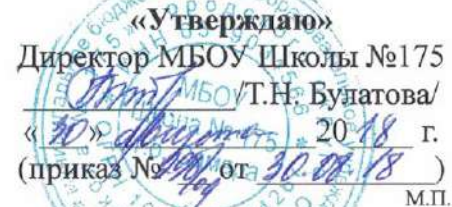 «Утверждаю»
Директор МБОУ Школы №175
/Т.Н. Булатова/
«30» августа 2018 г.
(приказ № от 30.08.18)
М.П.